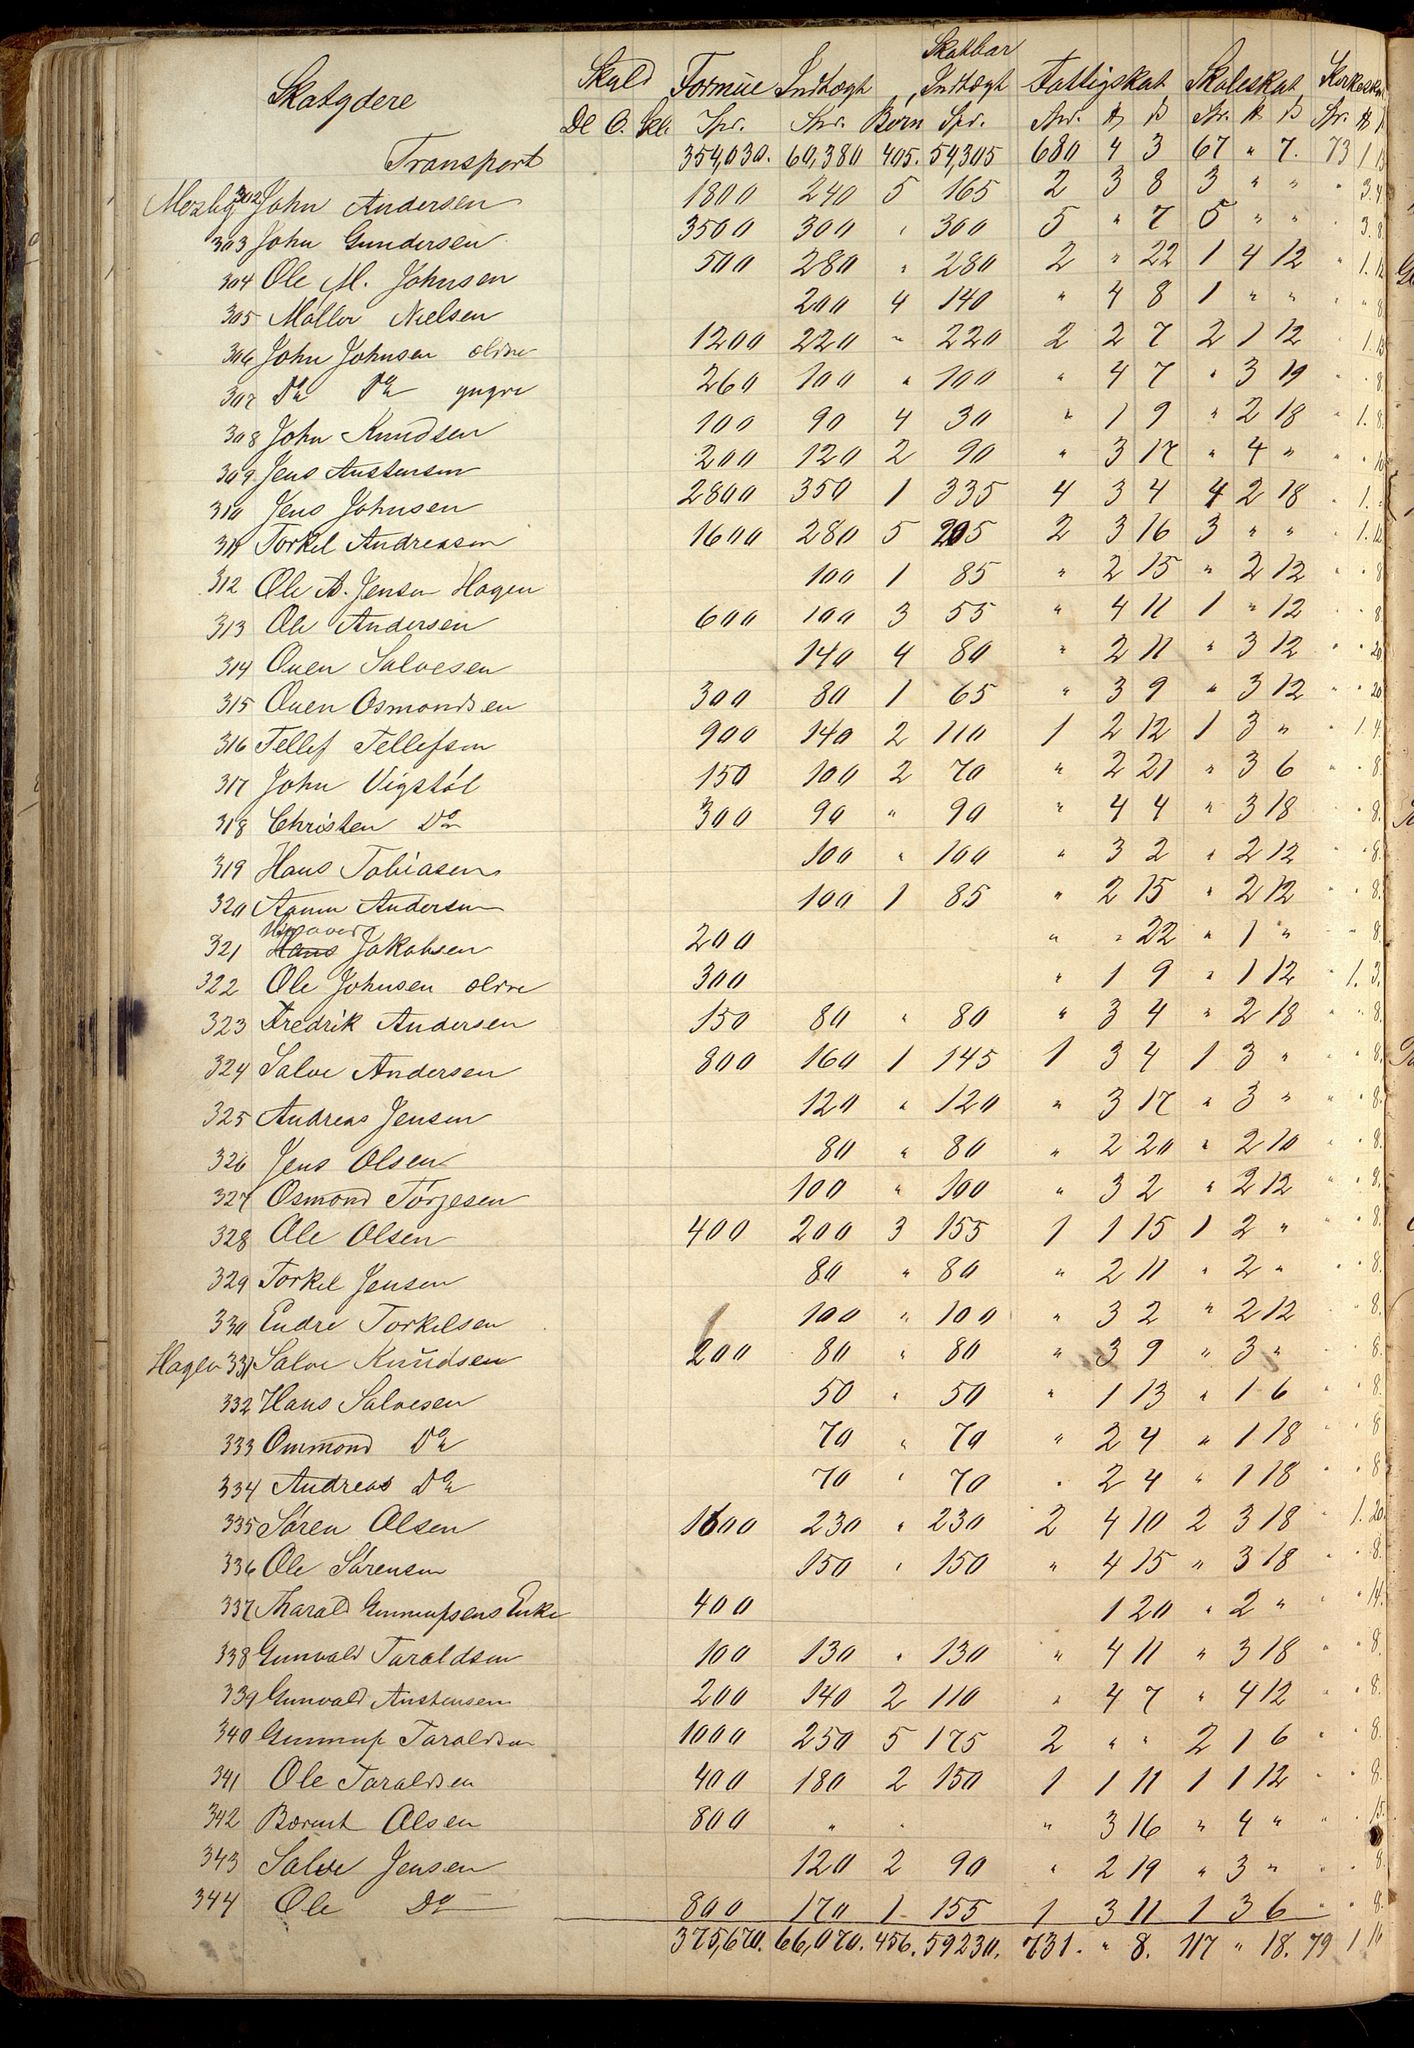 Skatydere Skyld Formue Indtægt Børn Skatbar Indtægt Fattigskat Skoleskat Kirkeskat
Dl. O. Skl. Spr. Spr. Børn Spr. Spr. # ß Spr. # ß Spr. #
Transport 354,030. 60,380 405. 54,305 680 4 3 67 " 7. 73 1 13
302 John Andersen 1800 240 5 165 2 3 8 3 " " " 3. 4
303 John Gundersen 3500 300 " 300 5 " 7 5 " " " 3. 8.
304 Ole M. Johnsen 500 280 " 280 2 " 22 1 4 12 " 1. 12
305 Møller Nielsen 200 4 140 " 4 8 1 " " " " 8
306 John Johnsen ældre 1200 220 " 220 2 2 7 2 1 12 " 1. 13
307 Do Do yngre 260 100 " 100 " 4 7 " 3 19 " " 8.
308 John Knudsen 100 90 4 30 " 1 9 " 2 18 " 1. 8.
309 Jens Austensen 200 120 2 90 " 3 17 " 4 " " " 10
310 Jens Johnsen 2800 350 1 335 4 3 4 4 2 18 " 1. "
311 Torkel Andreasen 1600 280 5 205 2 3 16 3 " " " 1. 12
312 Ole A. Jensen Hagen 100 1 85 " 2 15 " 2 12 " " 8
313 Ole Andersen 600 100 3 55 " 4 11 1 " 12 " " 8.
314 Ouen Salvesen 140 4 80 " 2 11 " 3 12 " " 20
315 Ouen Osmondsen 300 80 1 65 " 3 9 " 3 12 " " 20
316 Tellef Tellefsen 900 140 2 110 1 2 12 1 3 " " 1 4.
317 John Vigstøl 150 100 2 70 " 2 21 " 3 6 " " 8.
318 Christen Do 300 90 " 90 " 4 4 " 3 18 " " 8.
319 Hans Tobiasen 100 " 100 " 3 2 " 2 12 " " 8.
320 Andersen 100 1 85 " 2 15 " 2 12 " " 8.
321 Hans Jakobsen 200 " " 22 " 1 " " " 8.
322 Ole Johnsen ældre 300 " 1 9 " 1 12 " 1. 3.
323 Fredrik Andersen 150 80 " 80 " 3 4 " 2 18 " " 8.
324 Salve Andersen 800 160 1 145 1 3 4 1 3 " " " 8.
325 Andreas Jensen 120 " 120 " 3 17 " 3 " " " 8.
326 Jens Olsen 80 " 80 " 2 20 " 2 10 " " 8.
327 Osmond Törjesen 100 " 100 " 3 2 " 2 12 " " 8.
328 Ole Olsen 400 200 3 155 1 1 15 1 2 " " " 8.
329 Torkel Jensen 80 " 80 " 2 11 " 2 " " " 8.
330 Endre Torkelsen 100 " 100 " 3 2 " 2 12 " " 8.
Hagen 331 Salve Knudsen 200 80 " 80 " 3 9 " 3 " " " 8.
332 Hans Salvesen 50 " 50 " 1 13 " 1 6 " " 8.
333 Ommond Do 70 " 70 " 2 4 " 1 18 " " 8
334 Andreas Do 70 " 70 " 2 4 " 1 18 " " 8
335 Søren Olsen 1600 230 " 230 2 4 10 2 3 18 " 1. 20.
336 Ole Sørensen 150 " 150 " 4 15 " 3 18 " " 8.
337 Tharald Gunnufsens Enke 400 1 20 " 2 " " " 14.
338 Gunvald Taraldsen 100 130 " 130 " 4 11 " 3 18 " " 8.
339 Gunvald Austensen 200 140 2 110 " 4 7 " 4 12 " " 8.
340 Gunnuf Taraldsen 1000 250 5 175 2 " " 2 1 6 " " 8.
341 Ole Taraldsen 400 180 2 150 1 1 11 1 1 12 " " 8.
342 Bærnt Olsen 800 " " " 3 16 " 4 " " " 15.
343 Salve Jensen 120 2 90 " 2 19 " 3 " " " 8.
344 Ole Do 800 170 1 155 1 3 11 1 3 6 " " 8.
375,670. 66,070. 456. 59230. 731. " 8. 117 " 18. 79 1 16